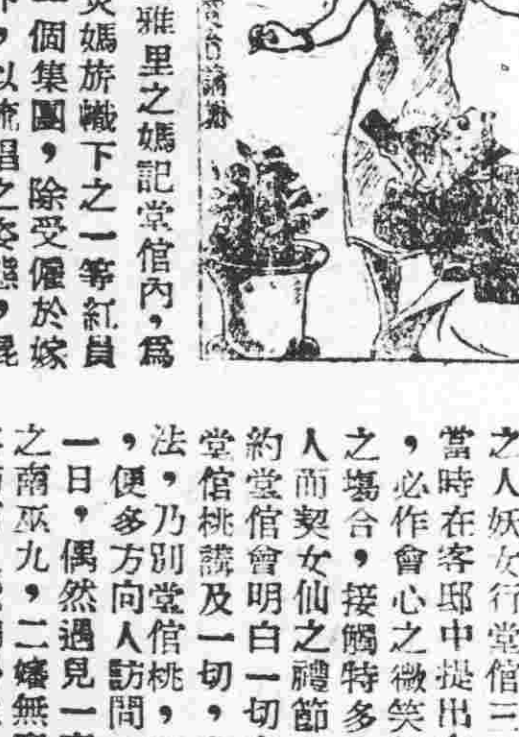 雅里之媽記堂倌內，爲
媽旂幟下之一等紅員
個集團，除受僱於嫁
以 唱之姿態，
之人妖女行堂倌三
當時在客邸中提出
，必作會心之微笑
之塲合，接觸特多
人而契女仙之禮節
約堂倌會明白一切
堂倌桃講及一切，
法，乃別堂倌桃，
，便多方向人訪問
一日，偶然遇見一
之南巫九，二嬸無